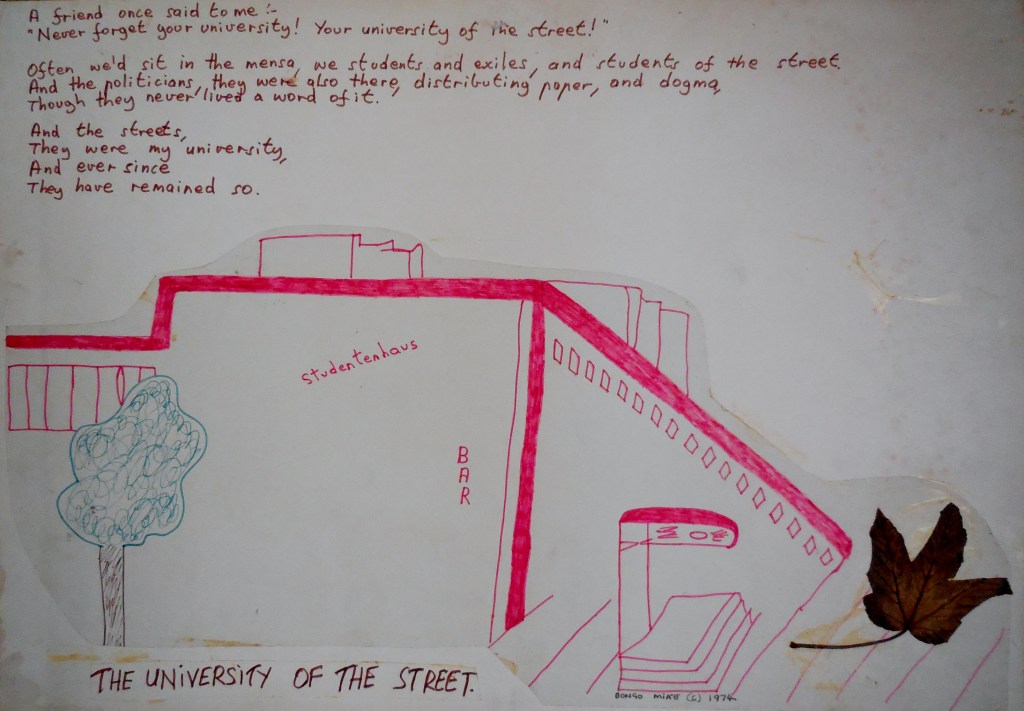 A friend once said to me :-
"Never forget your university! Your university of the street!"
Often we'd sit in the mensa, we students and exiles, and students of the street.
And the politicians, they were also there, distributing paper, and dogma,
Though they never lived a word of it.
And the streets,
They were my university,
And ever since
They have remained so.
studentenhaus
BAR
THE UNIVERSITY OF THE STREET.
BONGO MIKE (C) 1974